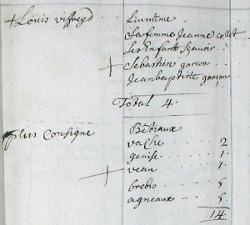 + Louis viffreyd . Luimême
La femme Jeanne collet
Les Enfants sçavoir
+ Sebastien garcon
Jean baptiste garcon
Total 4.
plus Consigne Bêtiaux
vache 2
genise 1
+ veau 1
brebis 5
agneaux 5
14